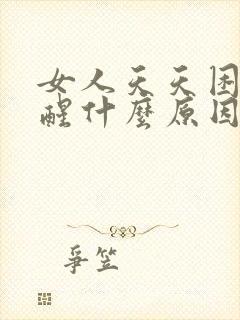 女人天天困
醒什麼原因
爭笠